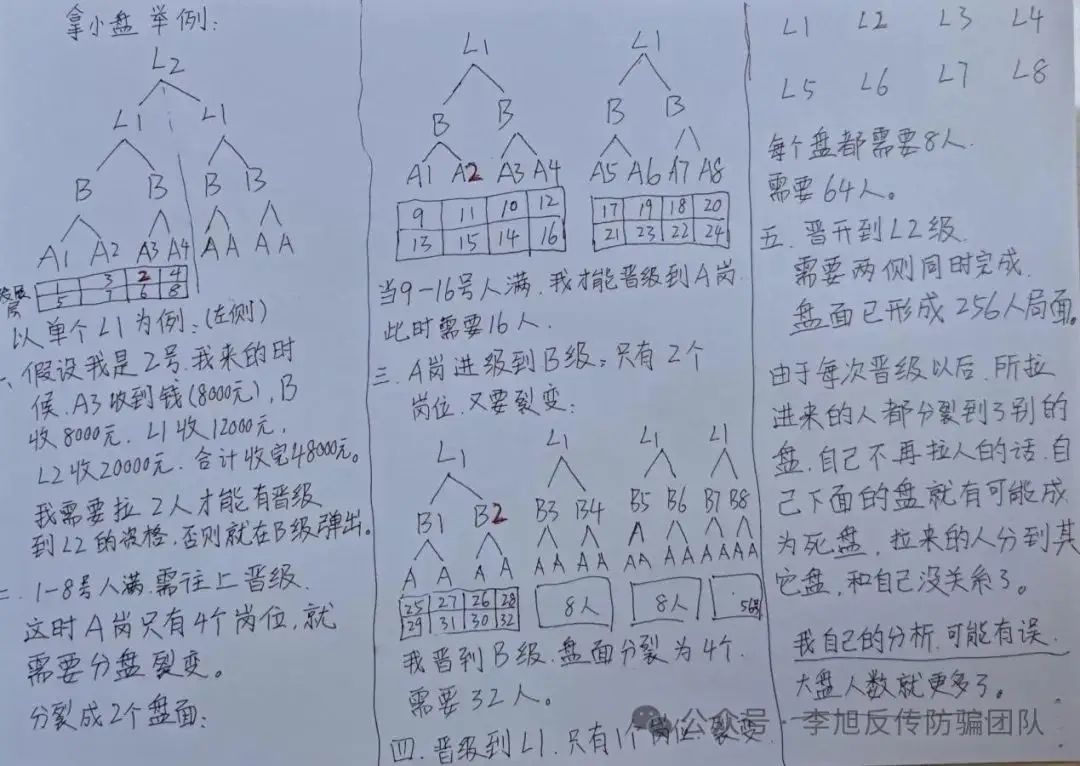 拿小盘举例:
L2
L1 L1
B B B B
A1 A2 A3 A4 A A A A
发展层
1 3 2 4
5 7 6 8
以单个L1为例:(左侧)
一、假设我是2号.我来的时
候.A3收到钱(8000元),B
收8000元.L1收12000元,
L2收20000元.合计收完48000元。
我需要拉2人才能有晋级
到L2的资格,否则就在B级弹出。
二.1-8号人满.需往上晋级.
这时A岗只有4个岗位,就
需要分盘裂变。
分裂成2个盘面:
L1 L1
B B B B
A1 A2 A3 A4 A5 A6 A7 A8
9 11 10 12 17 19 18 20
13 15 14 16 21 23 22 24
当9-16号人满.我才能晋级到A岗
此时需要16人.
三.A岗进级到B级:只有2个
岗位.又要裂变:
L1 L1 L1 L1
B1 B2 B3 B4 B5 B6 B7 B8
A A A A AA AA A A AA AA AA
25 27 26 28
29 31 30 32
8人 8人 56号
我晋到B级.盘面分裂为4个.
需要32人。
四.晋级到L1.只有1个岗位.裂变
L1 L2 L3 L4
L5 L6 L7 L8
每个盘都需要8人.
需要64人。
五.晋升到L2级.
需要两侧同时完成.
盘面已形成256人局面。
由于每次晋级以后.所拉
进来的人都分裂到了别的
盘.自己不再拉人的话.自
己下面的盘就有可能成
为死盘,拉来的人分到其
它盘,和自己没关系了。
我自己的分析.可能有误.
大盘人数就更多了。
公众号·李旭反传防骗团队